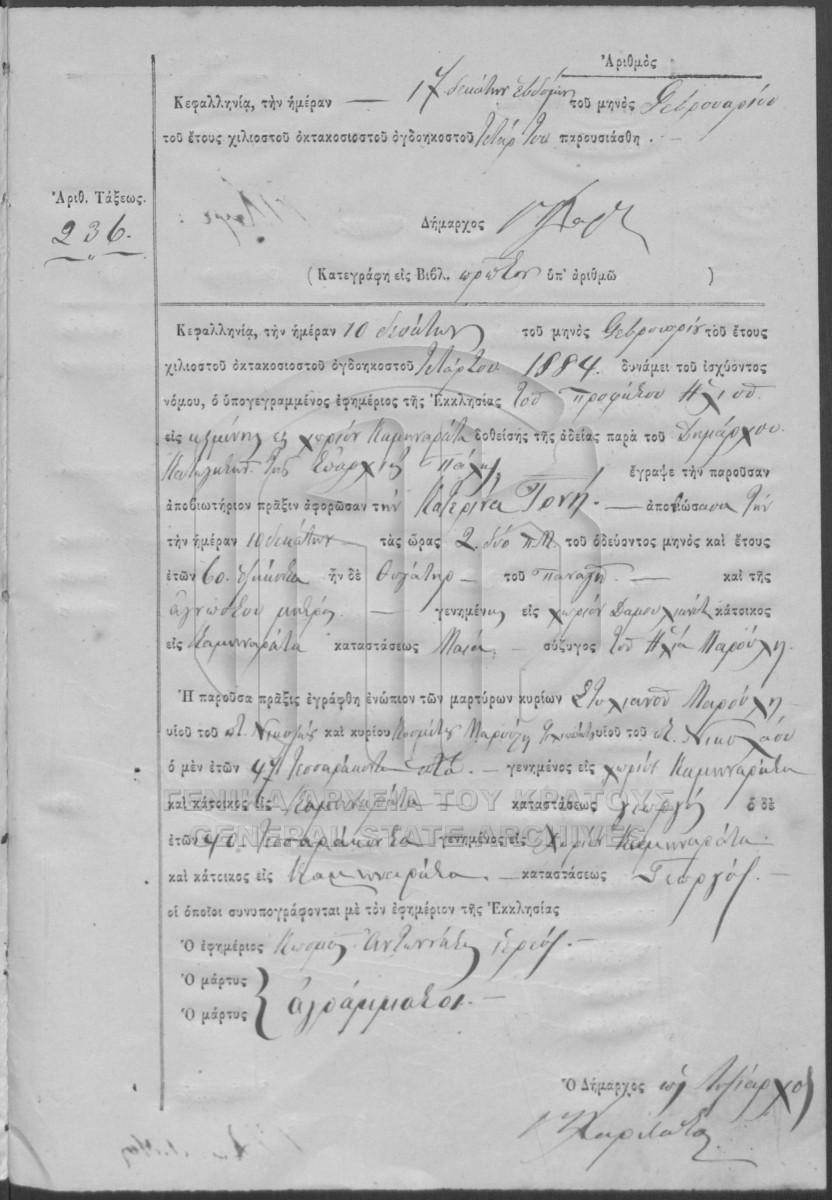 Ἀριθμὸς
Κεφαλληνίᾳ, τὴν ἡμέραν — 17 δεκάτην ἑβδόμην τοῦ μηνὸς Φεβρουαρίου
τοῦ ἔτους χιλιοστοῦ ὀκτακοσιοστοῦ ὀγδοηκοστοῦ τετάρτου παρουσιάσθη . –
Ἀριθ. Τάξεως.
236.
Δήμαρχος
(Κατεγράφη εἰς Βιβλ. πρῶτον ὑπ' ἀριθμῶ )
Κεφαλληνίᾳ, τὴν ἡμέραν 10 δεκάτην τοῦ μηνὸς Φεβρουαρίου τοῦ ἔτους
χιλιοστοῦ ὀκτακοσιοστοῦ ὀγδοηκοστοῦ τετάρτου 1884. δυνάμει τοῦ ἰσχύοντος
νόμου, ὁ ὑπογεγραμμένος ἐφημέριος τῆς Ἐκκλησίας τοῦ Προφήτου Ἠλιοῦ
εἰς χωρίον Καμιναράτα δοθείσης τῆς ἀδείας παρὰ τοῦ Δημάρχου
τῆς Ἐπαρχίας Πάλης ἔγραψε τὴν παροῦσαν
ἀποβιωτήριον πρᾶξιν ἀφορῶσαν τὴν Κατερίνα — ἀποβιώσασα τὴν
τὴν ἡμέραν 10 δεκάτην — τὰς ὥρας 2. δύο π.Μ. τοῦ ὁδεύοντος μηνὸς καὶ ἔτους
ἐτῶν 60. ἑξήκοντα ἦν δὲ θυγάτηρ – τοῦ Παναγῆ. — καὶ τῆς
ἀγνώστου μητρός. — γενημένη εἰς χωρίον Δαμουλιανάτα κάτοικος
εἰς Καμιναράτα καταστάσεως Μαία. – σύζυγος τοῦ Ἠλία Μαρούλη.
Ἡ παροῦσα πρᾶξις ἐγράφθη ἐνώπιον τῶν μαρτύρων κυρίων Στυλιανοῦ Μαρούλη
υἱοῦ τοῦ Νικολάου καὶ κυρίου Μαρούλη υἱοῦ τοῦ Νικολάου
ὁ μὲν ἐτῶν 47 τεσσαράκοντα ἑπτά. – γενημένος εἰς χωρίον Καμιναράτα
καὶ κάτοικος εἰς Καμιναράτα – καταστάσεως γεωργός ὁ δὲ
ἐτῶν 40 τεσσαράκοντα γενημένος εἰς χωρίον Καμιναράτα.
καὶ κάτοικος εἰς Καμιναράτα. – καταστάσεως Γεωργός. –
οἱ ὁποῖοι συνυπογράφονται μὲ τὸν ἐφημέριον τῆς Ἐκκλησίας
Ὁ ἐφημέριος Κοσμᾶς Ἀντωνάτος ἱερεύς. –
Ὁ μάρτυς
Ὁ μάρτυς } ἀγράμματοι. –
Ὁ Δήμαρχος
ΓΕΝΙΚΑ ΑΡΧΕΙΑ ΤΟΥ ΚΡΑΤΟΥΣ
GENERAL STATE ARCHIVES